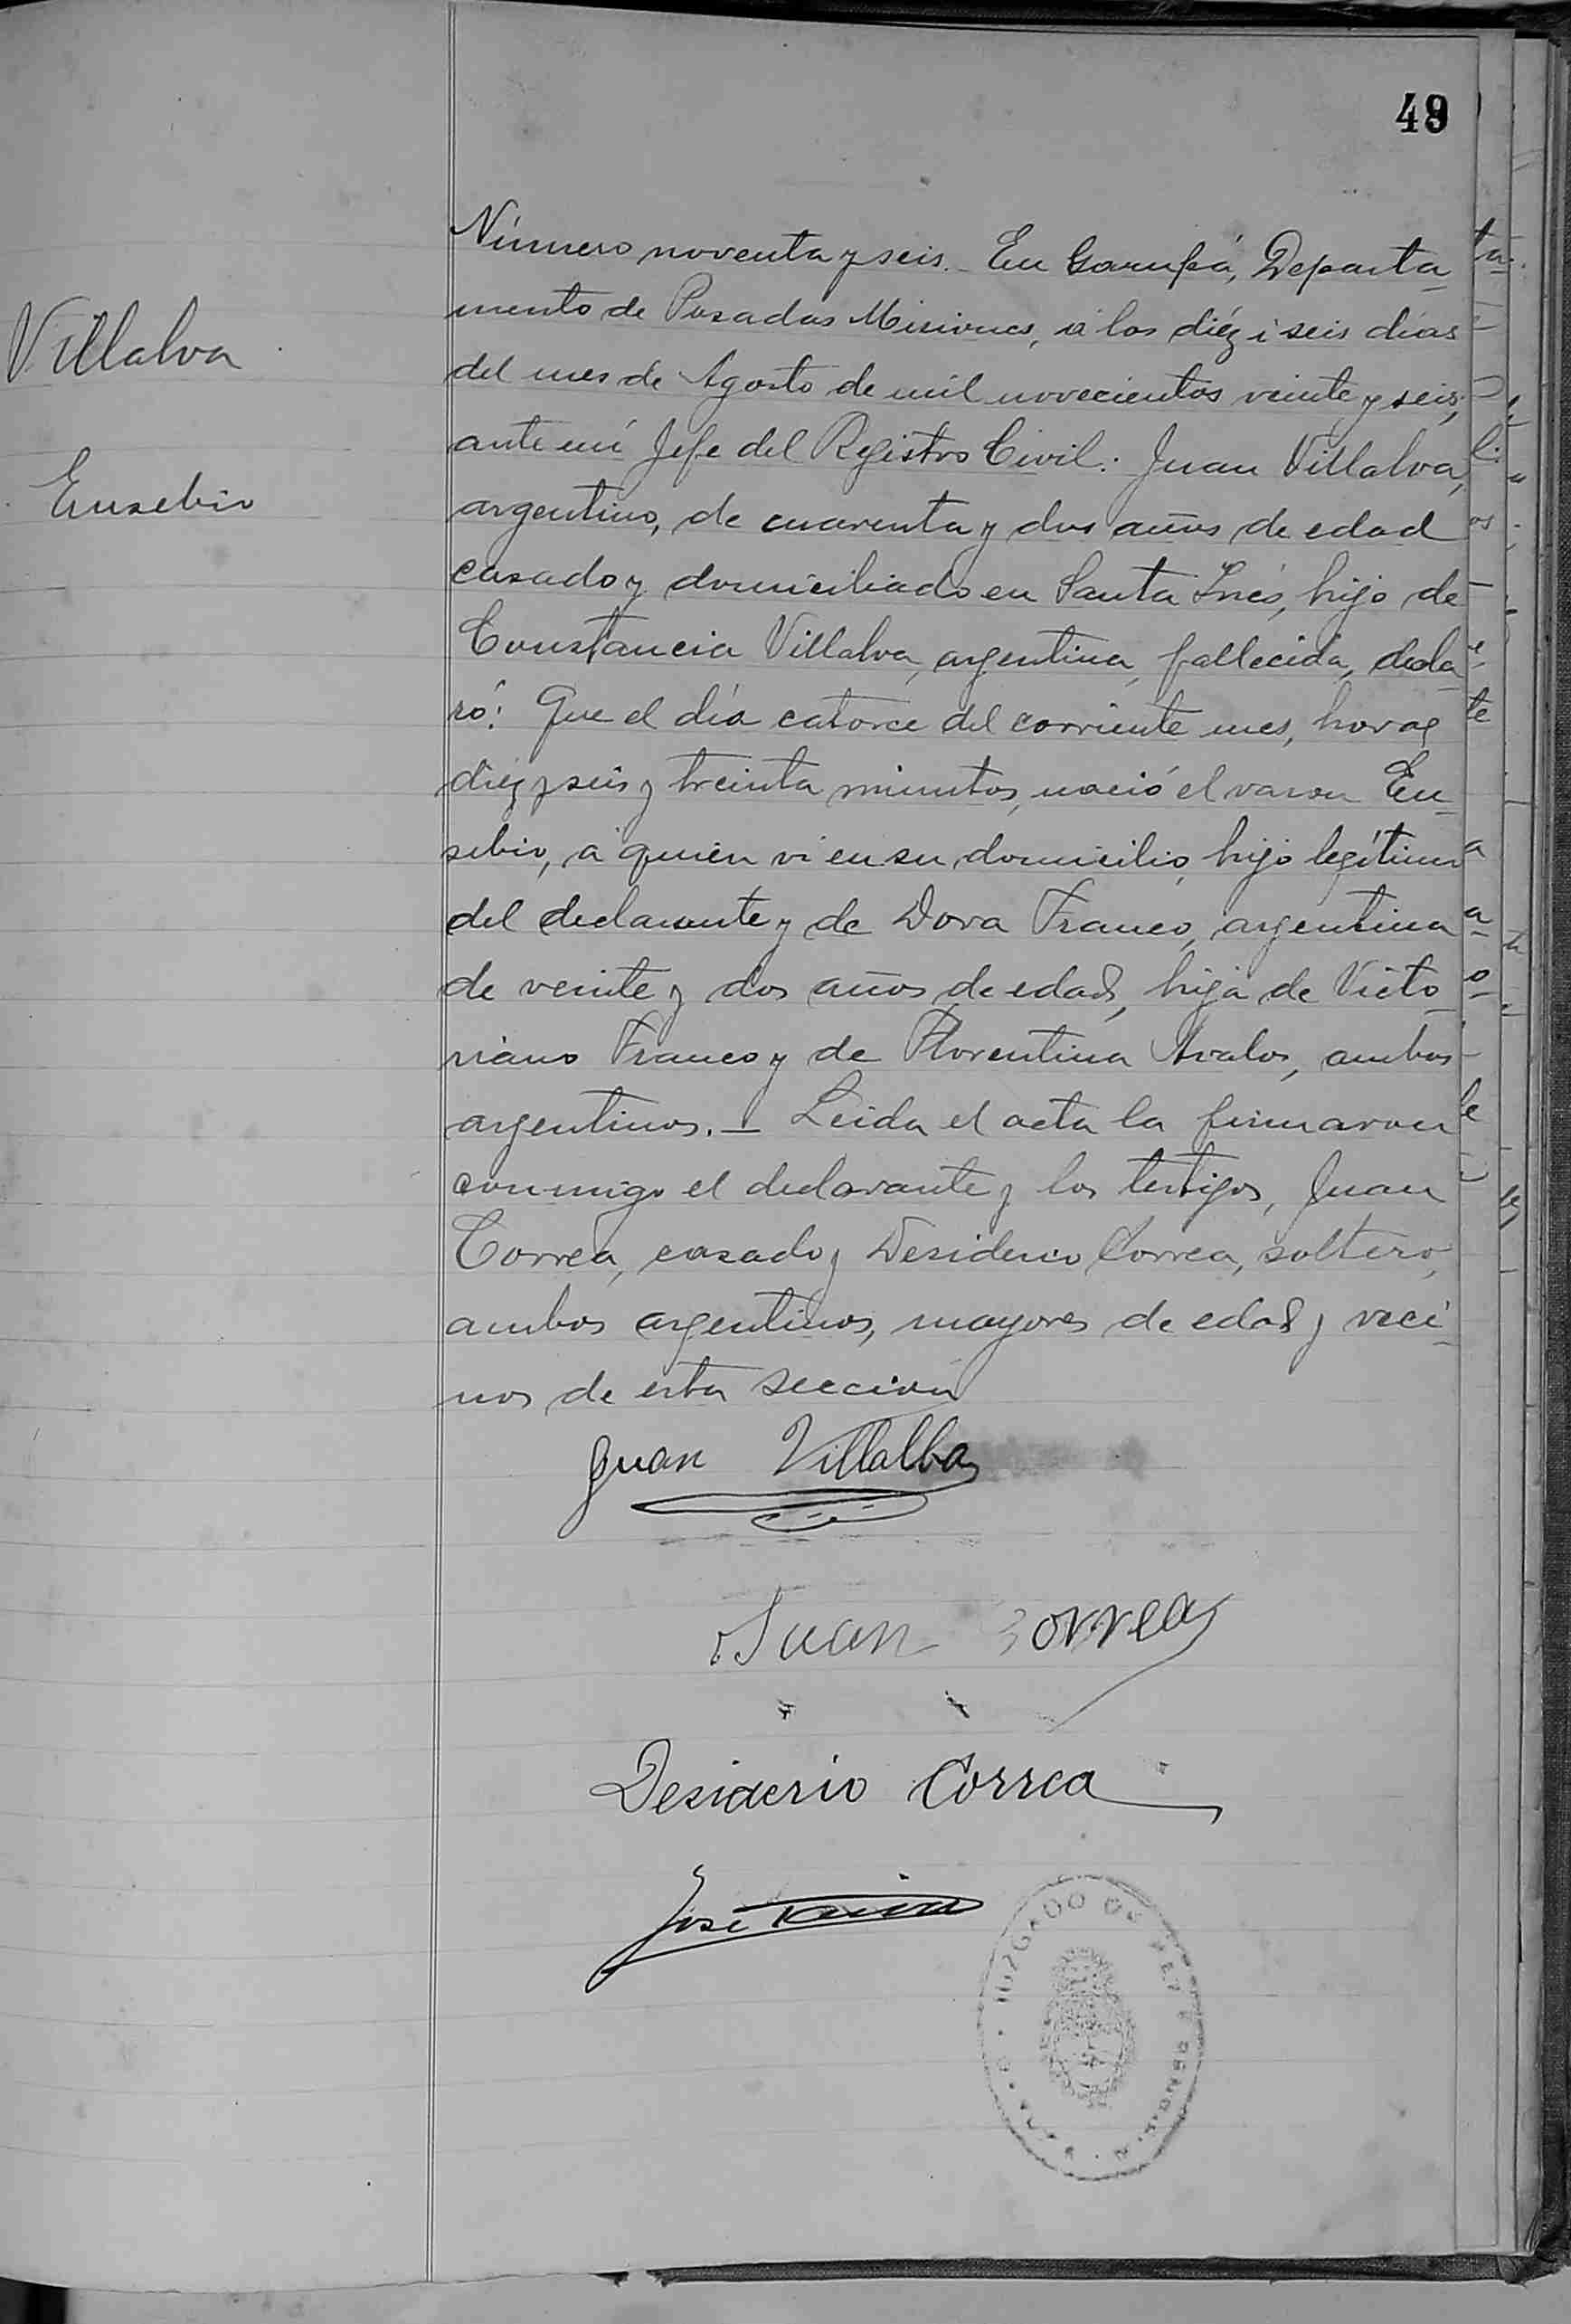 49
Villalva
Eusebio
Número noventa y seis.- En Garupá, Departa-
mento de Posadas Misiones, á los diéz i seis días
del mes de Agosto de mil novecientos veinte y seis,
ante mí Jefe del Registro Civil: Juan Villalva,
argentino, de cuarenta y dos años de edad
casado y domiciliado en Santa Inés, hijo de
Constancia Villalva, argentina, fallecida, decla-
ró: Que el día catorce del corriente mes, horas
diéz y seis y treinta minutos, nació el varon Eu-
sebio, á quien vi en su domicilio, hijo legítimo
del declarante y de Dora Franco, argentina
de veinte y dos años de edad, hija de Victo-
riano Franco y de Florentina Avalos, ambos
argentinos.- Leida el acta la firmaron
conmigo el declarante y los testigos, Juan
Correa, casado y Desiderio Correa, soltero,
ambos argentinos, mayores de edad y veci-
nos de esta sección
Juan Villalba
Juan Correa
Desiderio Correa
José
JUZGADO DE PAZ